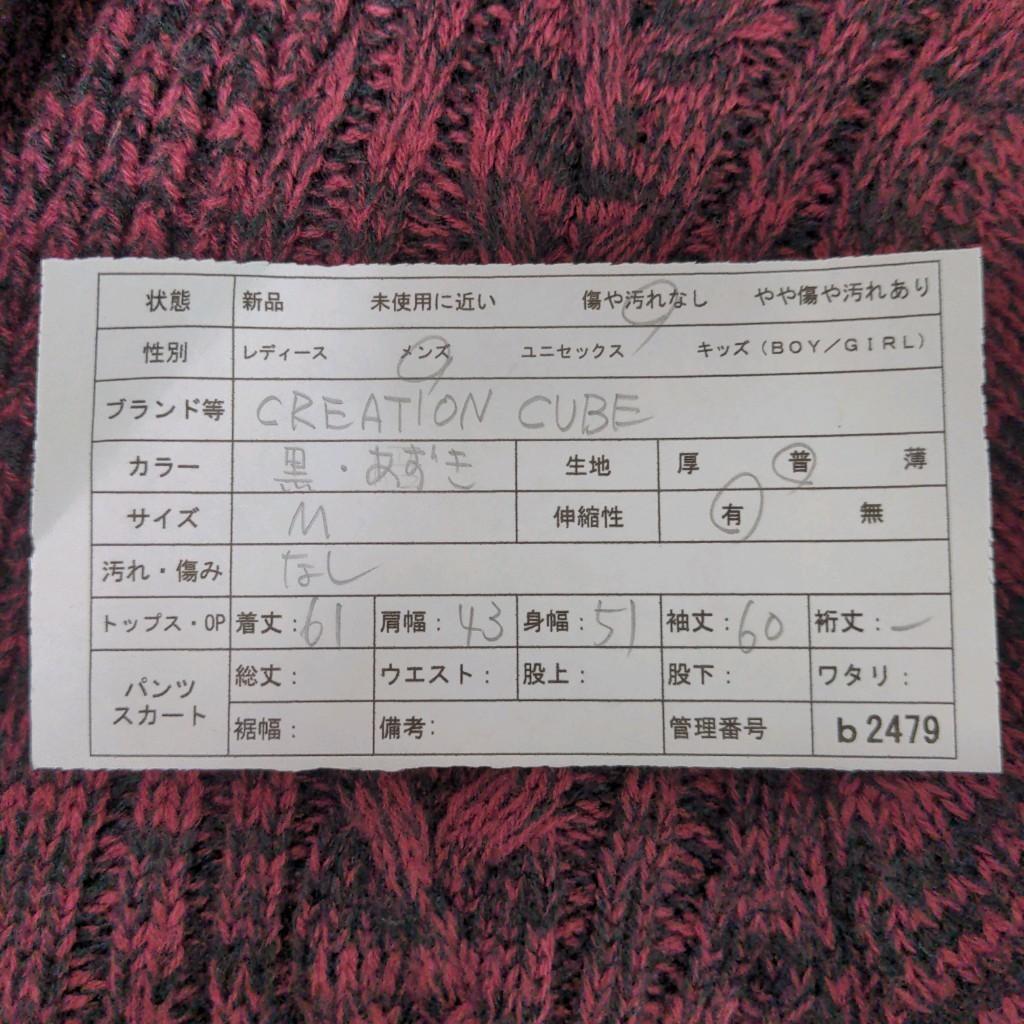 状態 新品 未使用に近い 傷や汚れなし やや傷や汚れあり
性別 レディース メンズ ユニセックス キッズ（BOY／GIRL）
ブランド等 CREATION CUBE
カラー 黒・あずき 生地 厚 普 薄
サイズ M 伸縮性 有 無
汚れ・傷み なし
トップス・OP 着丈：61 肩幅：43 身幅：51 袖丈：60 裄丈：ー
パンツ スカート 総丈： ウエスト： 股上： 股下： ワタリ：
裾幅： 備考： 管理番号 b2479